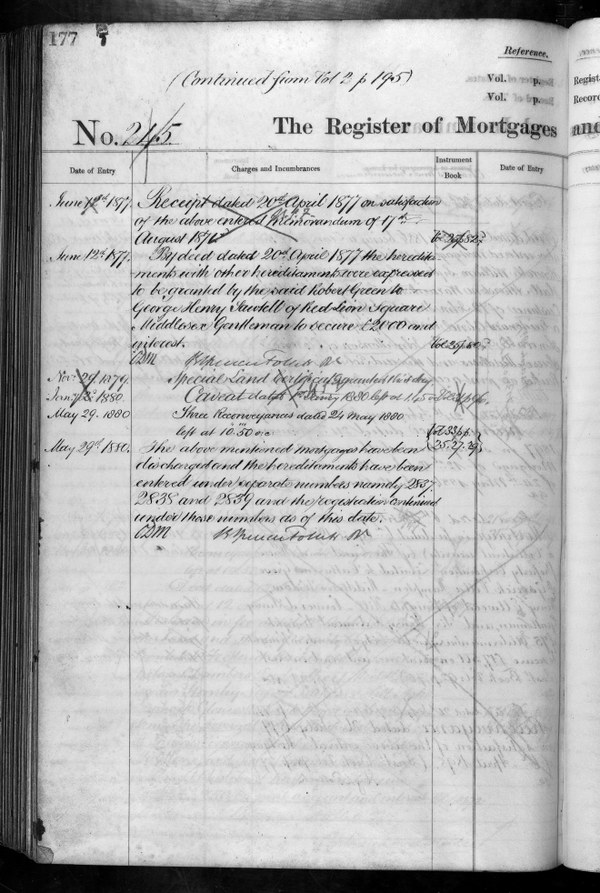 177
Reference.
(Continued from Vol 2 p 195)
Vol. p.
Vol. p.
No. 245.
The Register of Mortgages
and
Regist
Record
Date of Entry
Charges and Incumbrances
Instrument Book
Date of Entry
June 12th 1877. Receipt dated 20th April 1877 on satisfaction
of the above entered Memorandum of 17th
August 1876
June 12th 1877. By deed dated 20th April 1877 the heredita-
ments with other hereditaments were expressed
to be granted by the said Robert Green to
George Henry of Red Lion Square
Middlesex Gentleman to secure £2000 and
interest.
CDM
Nov. 29. 1879. Special Land Certificate granted this day
Jany 1880. Caveat dated 1880 left at
May 29. 1880 Three Reconveyances dated 24 May 1880
left at 10.50 Vol 33 p.p.
35. 27. 29
May 29th 1880. The above mentioned mortgages have been
discharged and the hereditaments have been
entered under separate numbers namely 2837,
2838 and 2839 and the registration continued
under those numbers as of this date.
CDM